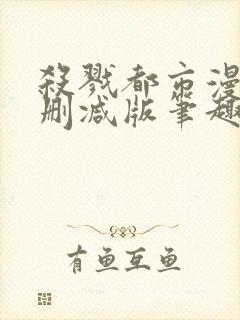 殺戮都市漫
删减版笔趣
有鱼互鱼